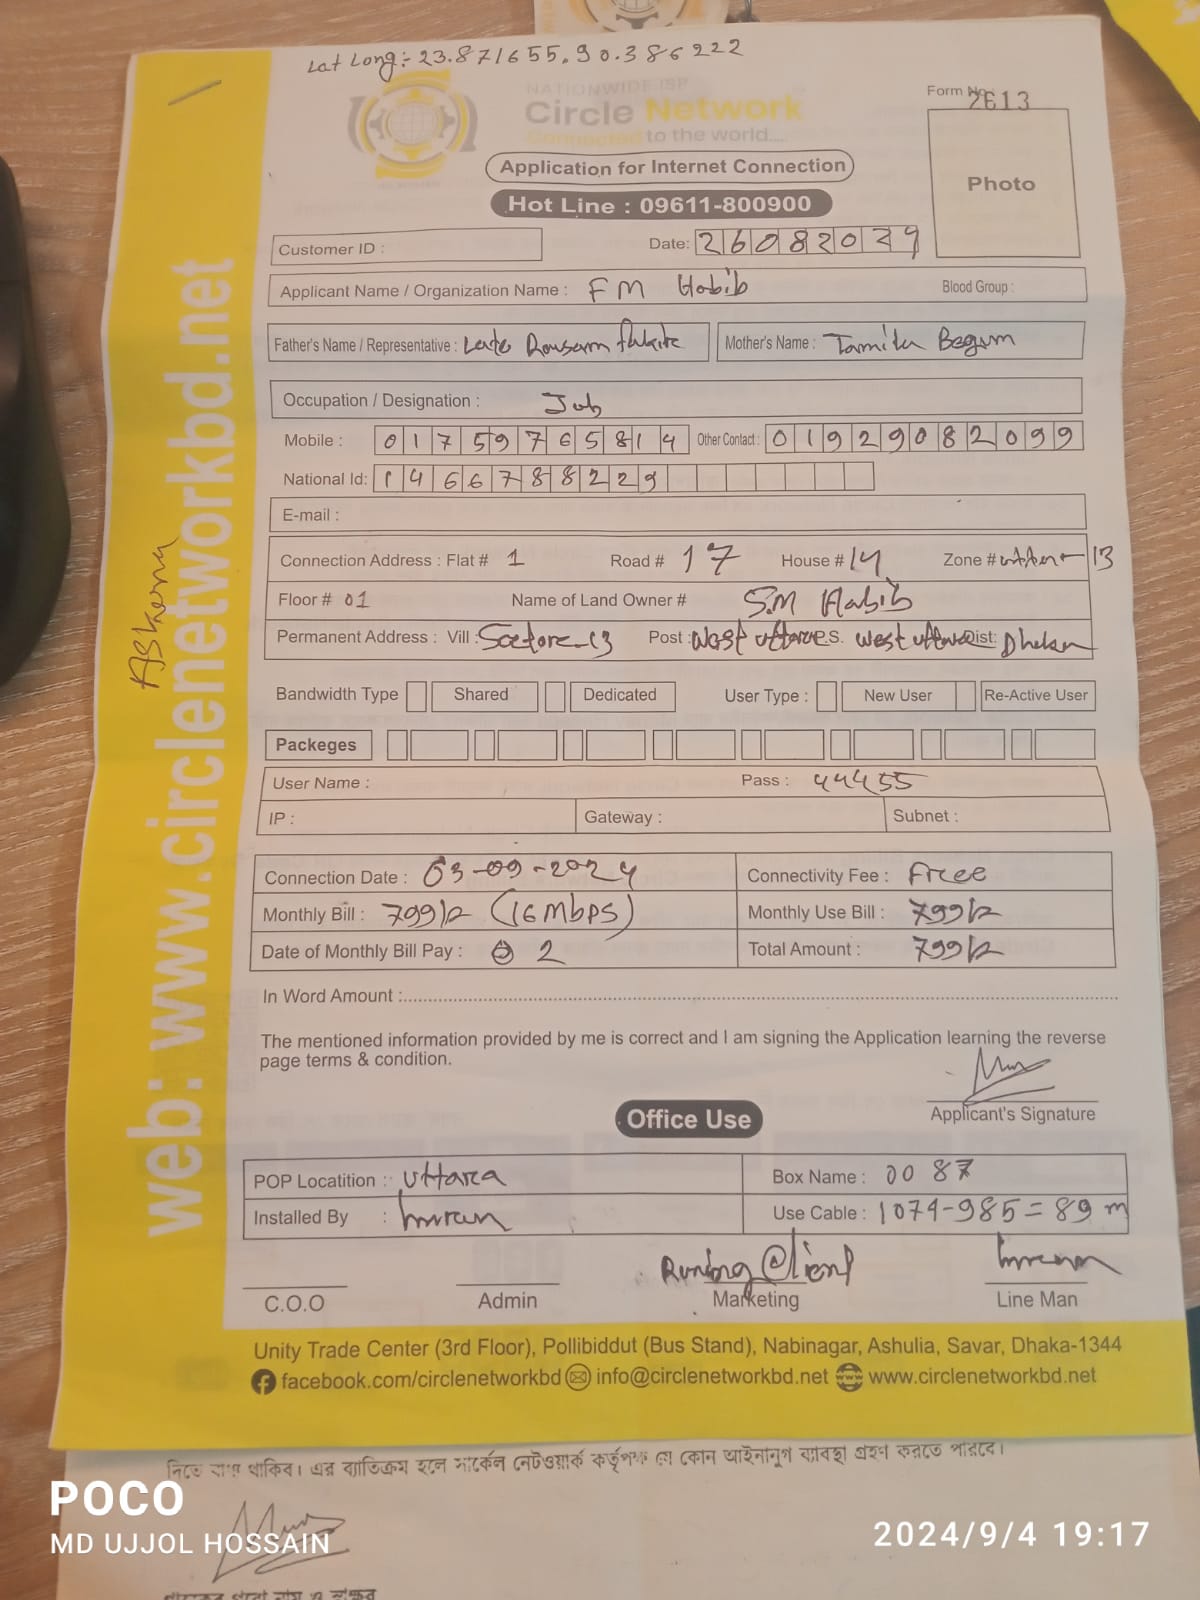 Lat Long:- 23.871655, 90.386222
NATIONWIDE ISP
Circle Network
Connected to the world....
Form No. 2613
Photo
Application for Internet Connection
Hot Line : 09611-800900
Customer ID :
Date: 26082024
Applicant Name / Organization Name : FM Habib
Blood Group :
Father's Name / Representative : Late
Mother's Name : Tamiku Begum
Occupation / Designation : Job
Mobile : 01759765814 Other Contact : 01929082099
National Id: 1466788229
E-mail :
Connection Address : Flat # 1 Road # 17 House # 14 Zone # 13
Floor # 01 Name of Land Owner # S.M Habib
Permanent Address : Vill : Sectore-13 Post : West uttara P.S. West uttara Dist: Dhaka
Bandwidth Type Shared Dedicated User Type : New User Re-Active User
Packeges
User Name : Pass : 44455
IP : Gateway : Subnet :
Connection Date : 03-09-2024 Connectivity Fee : Free
Monthly Bill : 799/- (16Mbps) Monthly Use Bill : 799/-
Date of Monthly Bill Pay : 2 Total Amount : 799/-
In Word Amount :
The mentioned information provided by me is correct and I am signing the Application learning the reverse
page terms & condition.
Applicant's Signature
Office Use
POP Locatition : Uttara Box Name : 0087
Installed By : Imran Use Cable : 1074-985=89 m
Runing Client Imran
C.O.O Admin Marketing Line Man
Unity Trade Center (3rd Floor), Pollibiddut (Bus Stand), Nabinagar, Ashulia, Savar, Dhaka-1344
facebook.com/circlenetworkbd info@circlenetworkbd.net www.circlenetworkbd.net
web: www.circlenetworkbd.net
দিতে বাধ্য থাকিব। এর ব্যতিক্রম হলে সার্কেল নেটওয়ার্ক কর্তৃপক্ষ যে কোন আইনানুগ ব্যাবস্থা গ্রহণ করতে পারবে।
POCO
MD UJJOL HOSSAIN
2024/9/4 19:17